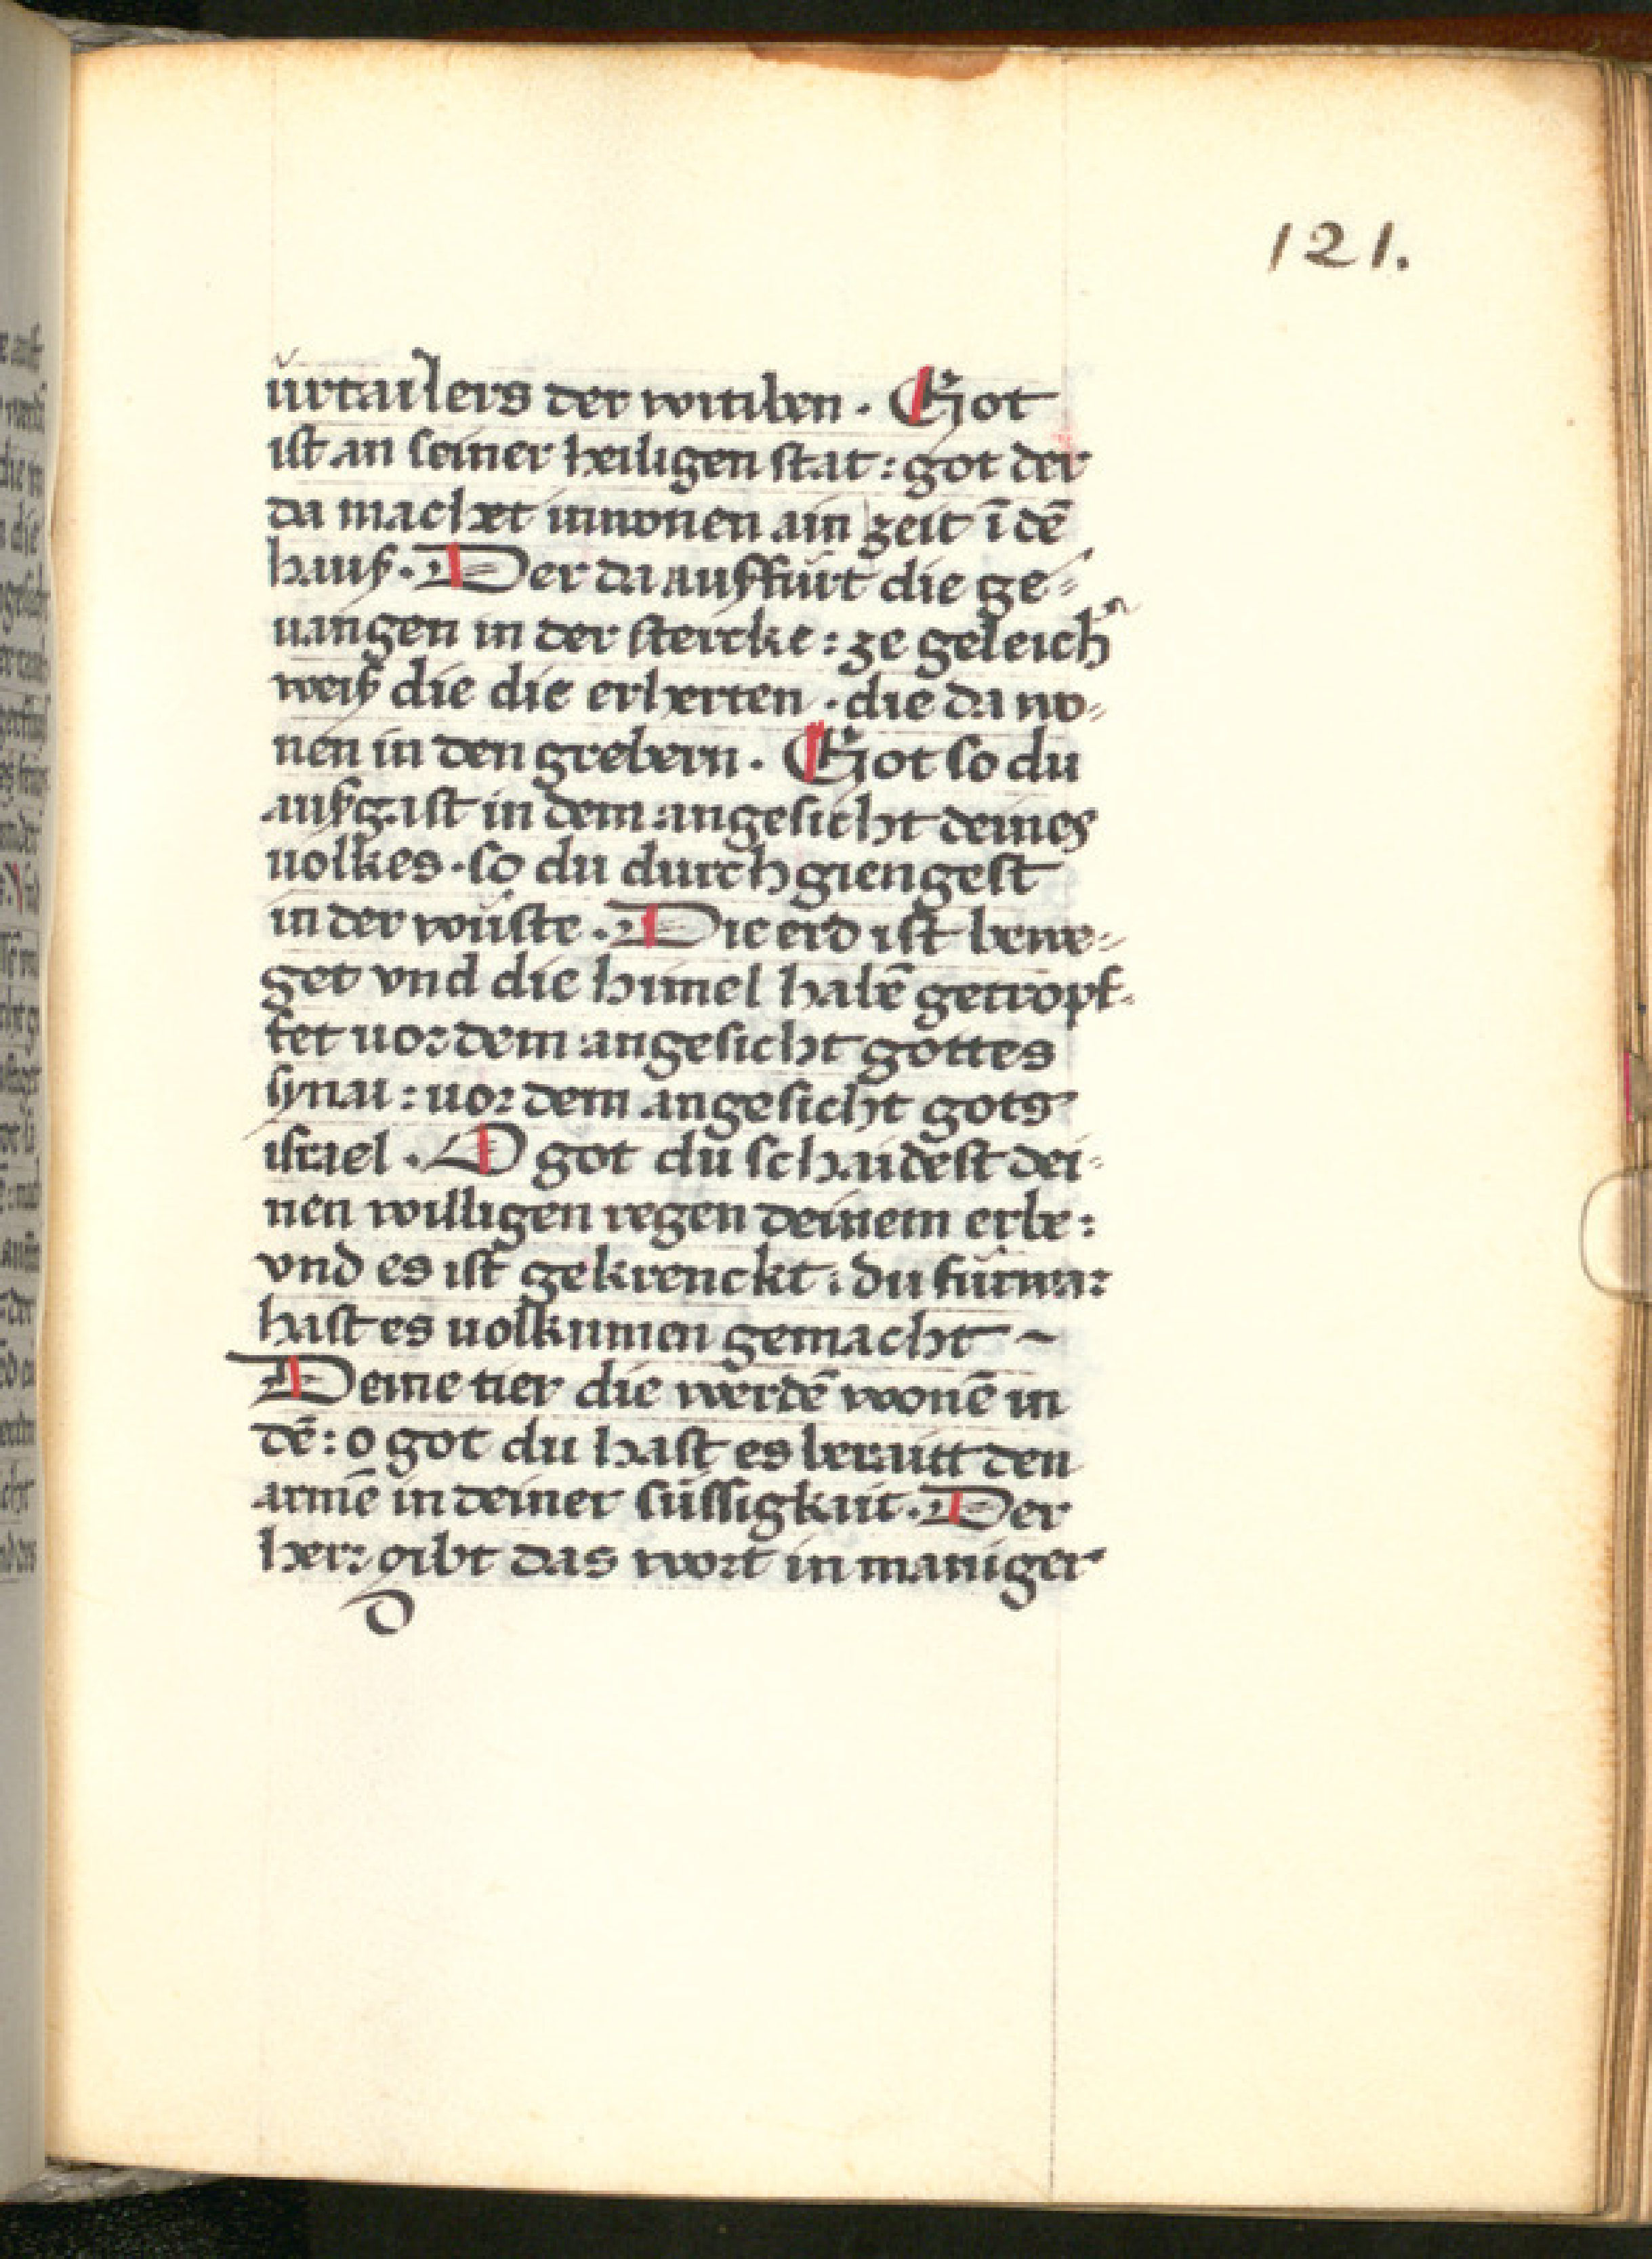 121.
ŭrtailers der witiben · Got
ist an seiner heiligen stat : got der
da machet inwonen ain zeit ī dē
hauß · Der da auffürt die ge⸗
uangen in der stercke : ze geleich̄
weiß die die erherten · die da wo⸗
nen in den grebern · Got so du
außgast in dem angesicht deines
uolkes · so du durchgiengest
in der wüste · Die erd ist bewe⸗
get vnd die himel habē getropf⸗
fet uor dem angesicht gottes
synai : uor dem angesicht gots
israel · O got du schaidest dei⸗
nen willigen regen deinem erbe :
vnd es ist gekrenckt : du fürwar
hast es uolkumen gemacht ~
Deine tier die werdē wonē in
dē : o got du hast es beraitt den
armē in deiner süssigkait · Der
herr gibt das wort in maniger